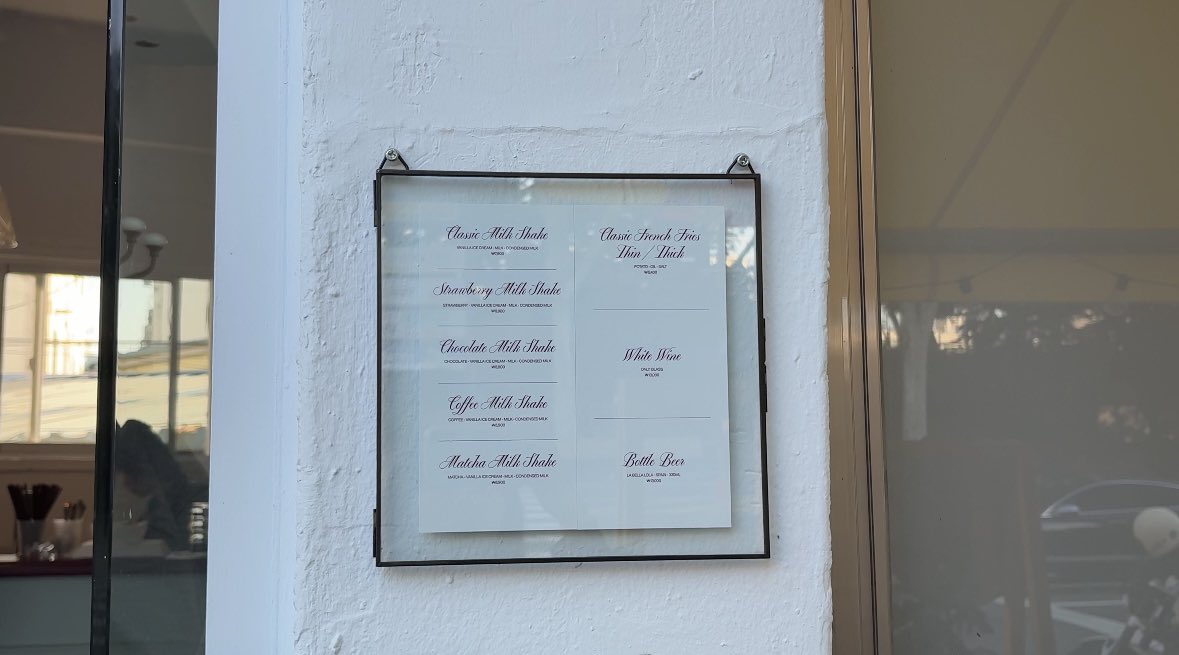 Classic Milk Shake
VANILLA ICE CREAM · MILK · CONDENSED MILK
Strawberry Milk Shake
STRAWBERRY · VANILLA ICE CREAM · MILK · CONDENSED MILK
Chocolate Milk Shake
CHOCOLATE · VANILLA ICE CREAM · MILK · CONDENSED MILK
Coffee Milk Shake
COFFEE · VANILLA ICE CREAM · MILK · CONDENSED MILK
Matcha Milk Shake
MATCHA · VANILLA ICE CREAM · MILK · CONDENSED MILK
Classic French Fries
Thin / Thick
POTATO · OIL · SALT
White Wine
ONLY GLASS
Bottle Beer
LA BELLA LOLA · SPAIN · 330ML